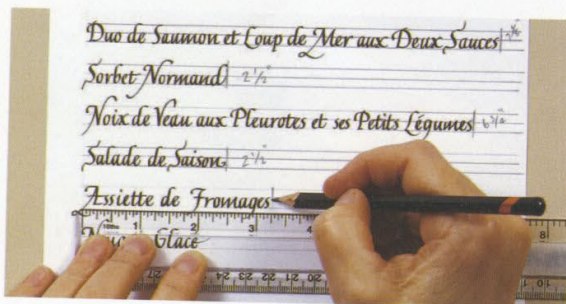 Duo de Saumon et Loup de Mer aux Deux Sauces
Sorbet Normand 2 1/2"
Noix de Veau aux Pleurotes et ses Petits Légumes
Salade de Saison 2 1/2"
Assiette de Fromages
1 2 3 4 8
Glacé
27 24 23 22 21 20 10